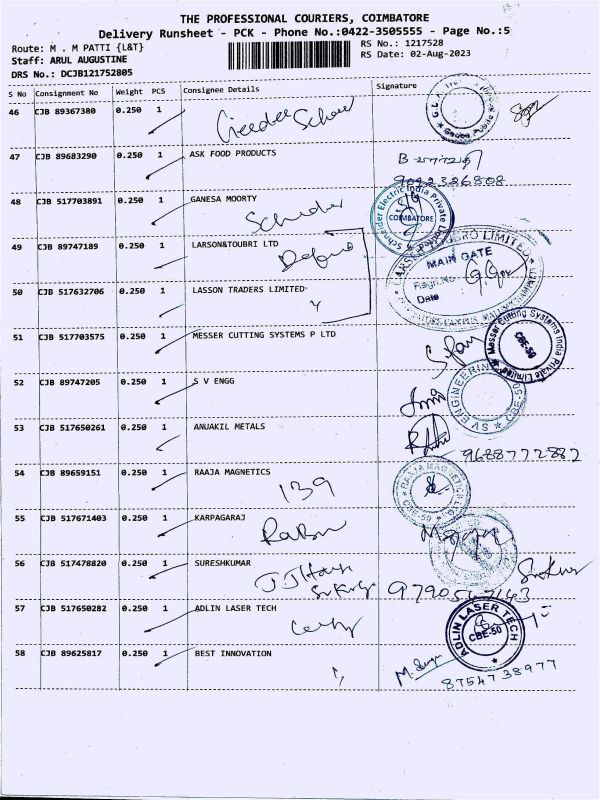 THE PROFESSIONAL COURIERS, COIMBATORE
Delivery Runsheet - PCK - Phone No.:0422-3505555 - Page No.:5
Route: M . M PATTI {L&T}
RS No.: 1217528
Staff: ARUL AUGUSTINE
RS Date: 02-Aug-2023
DRS No.: DCJB121752805
S No Consignment No Weight PCS Consignee Details Signature
46 CJB 89367380 0.250 1
47 CJB 89683290 0.250 1 ASK FOOD PRODUCTS
9092326808
48 CJB 517703891 0.250 1 GANESA MOORTY
Schneider Electric India Private
COIMBATORE
49 CJB 89747189 0.250 1 LARSON&TOUBRI LTD
MAIN GATE
Regn.No
Date
50 CJB 517632706 0.250 1 LASSON TRADERS LIMITED
51 CJB 517703575 0.250 1 MESSER CUTTING SYSTEMS P LTD
Messer Cutting Systems India Private Limited
CBE-50
52 CJB 89747205 0.250 1 S V ENGG
SV ENGINEERING
53 CJB 517650261 0.250 1 ANUAKIL METALS
9688772887
54 CJB 89659151 0.250 1 RAAJA MAGNETICS
139
55 CJB 517671403 0.250 1 KARPAGARAJ
56 CJB 517478820 0.250 1 SURESHKUMAR
57 CJB 517650282 0.250 1 ADLIN LASER TECH
ADLIN LASER TECH
CBE-50
58 CJB 89625817 0.250 1 BEST INNOVATION
8754738977